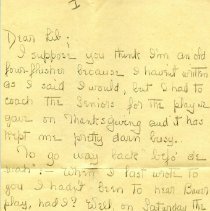 I
Dear Bib;
I suppose you think I'm an old
four-flusher because I haven't written
as I said I would, but I had to
coach the Seniors for the play we
gave on Thanksgiving and it has
kept me pretty darn busy.
To go way back "befo' de
wah":- When I last wrote to
you I hadn't been to near
play, had I? Well, on Saturday the